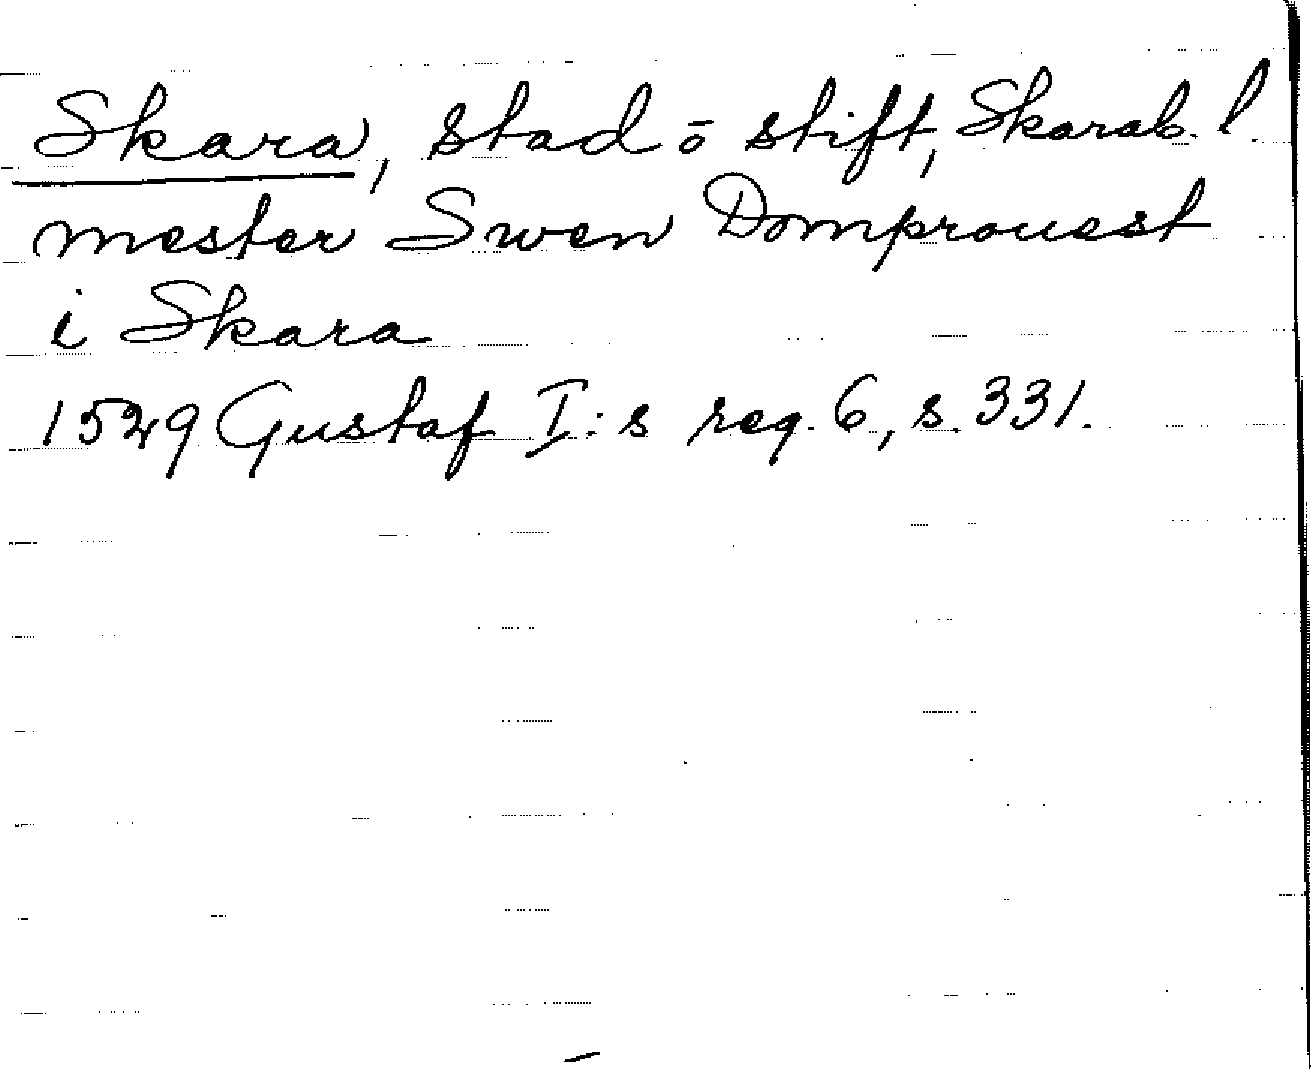 Skara, stad ō stift, Skarab. l.
mester Swen Domprouest
i Skara
1529 Gustaf I:s reg. 6, s. 331.